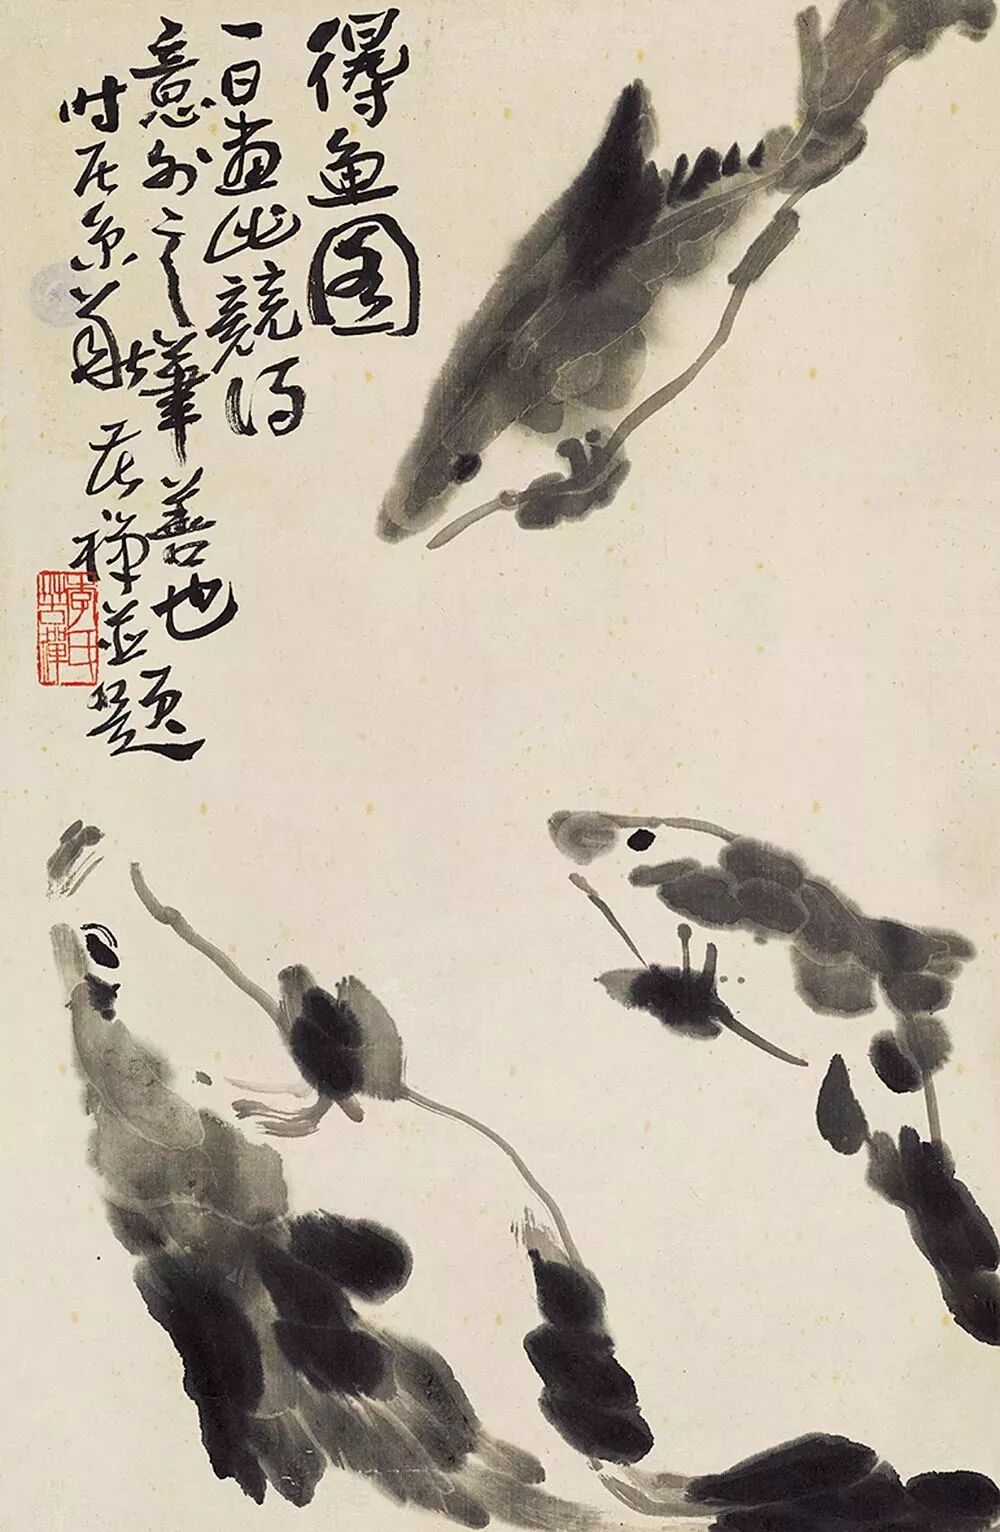 得鱼图
一日画此竟得
意外之笔善也
时居京华苦禅并题
李氏苦禅